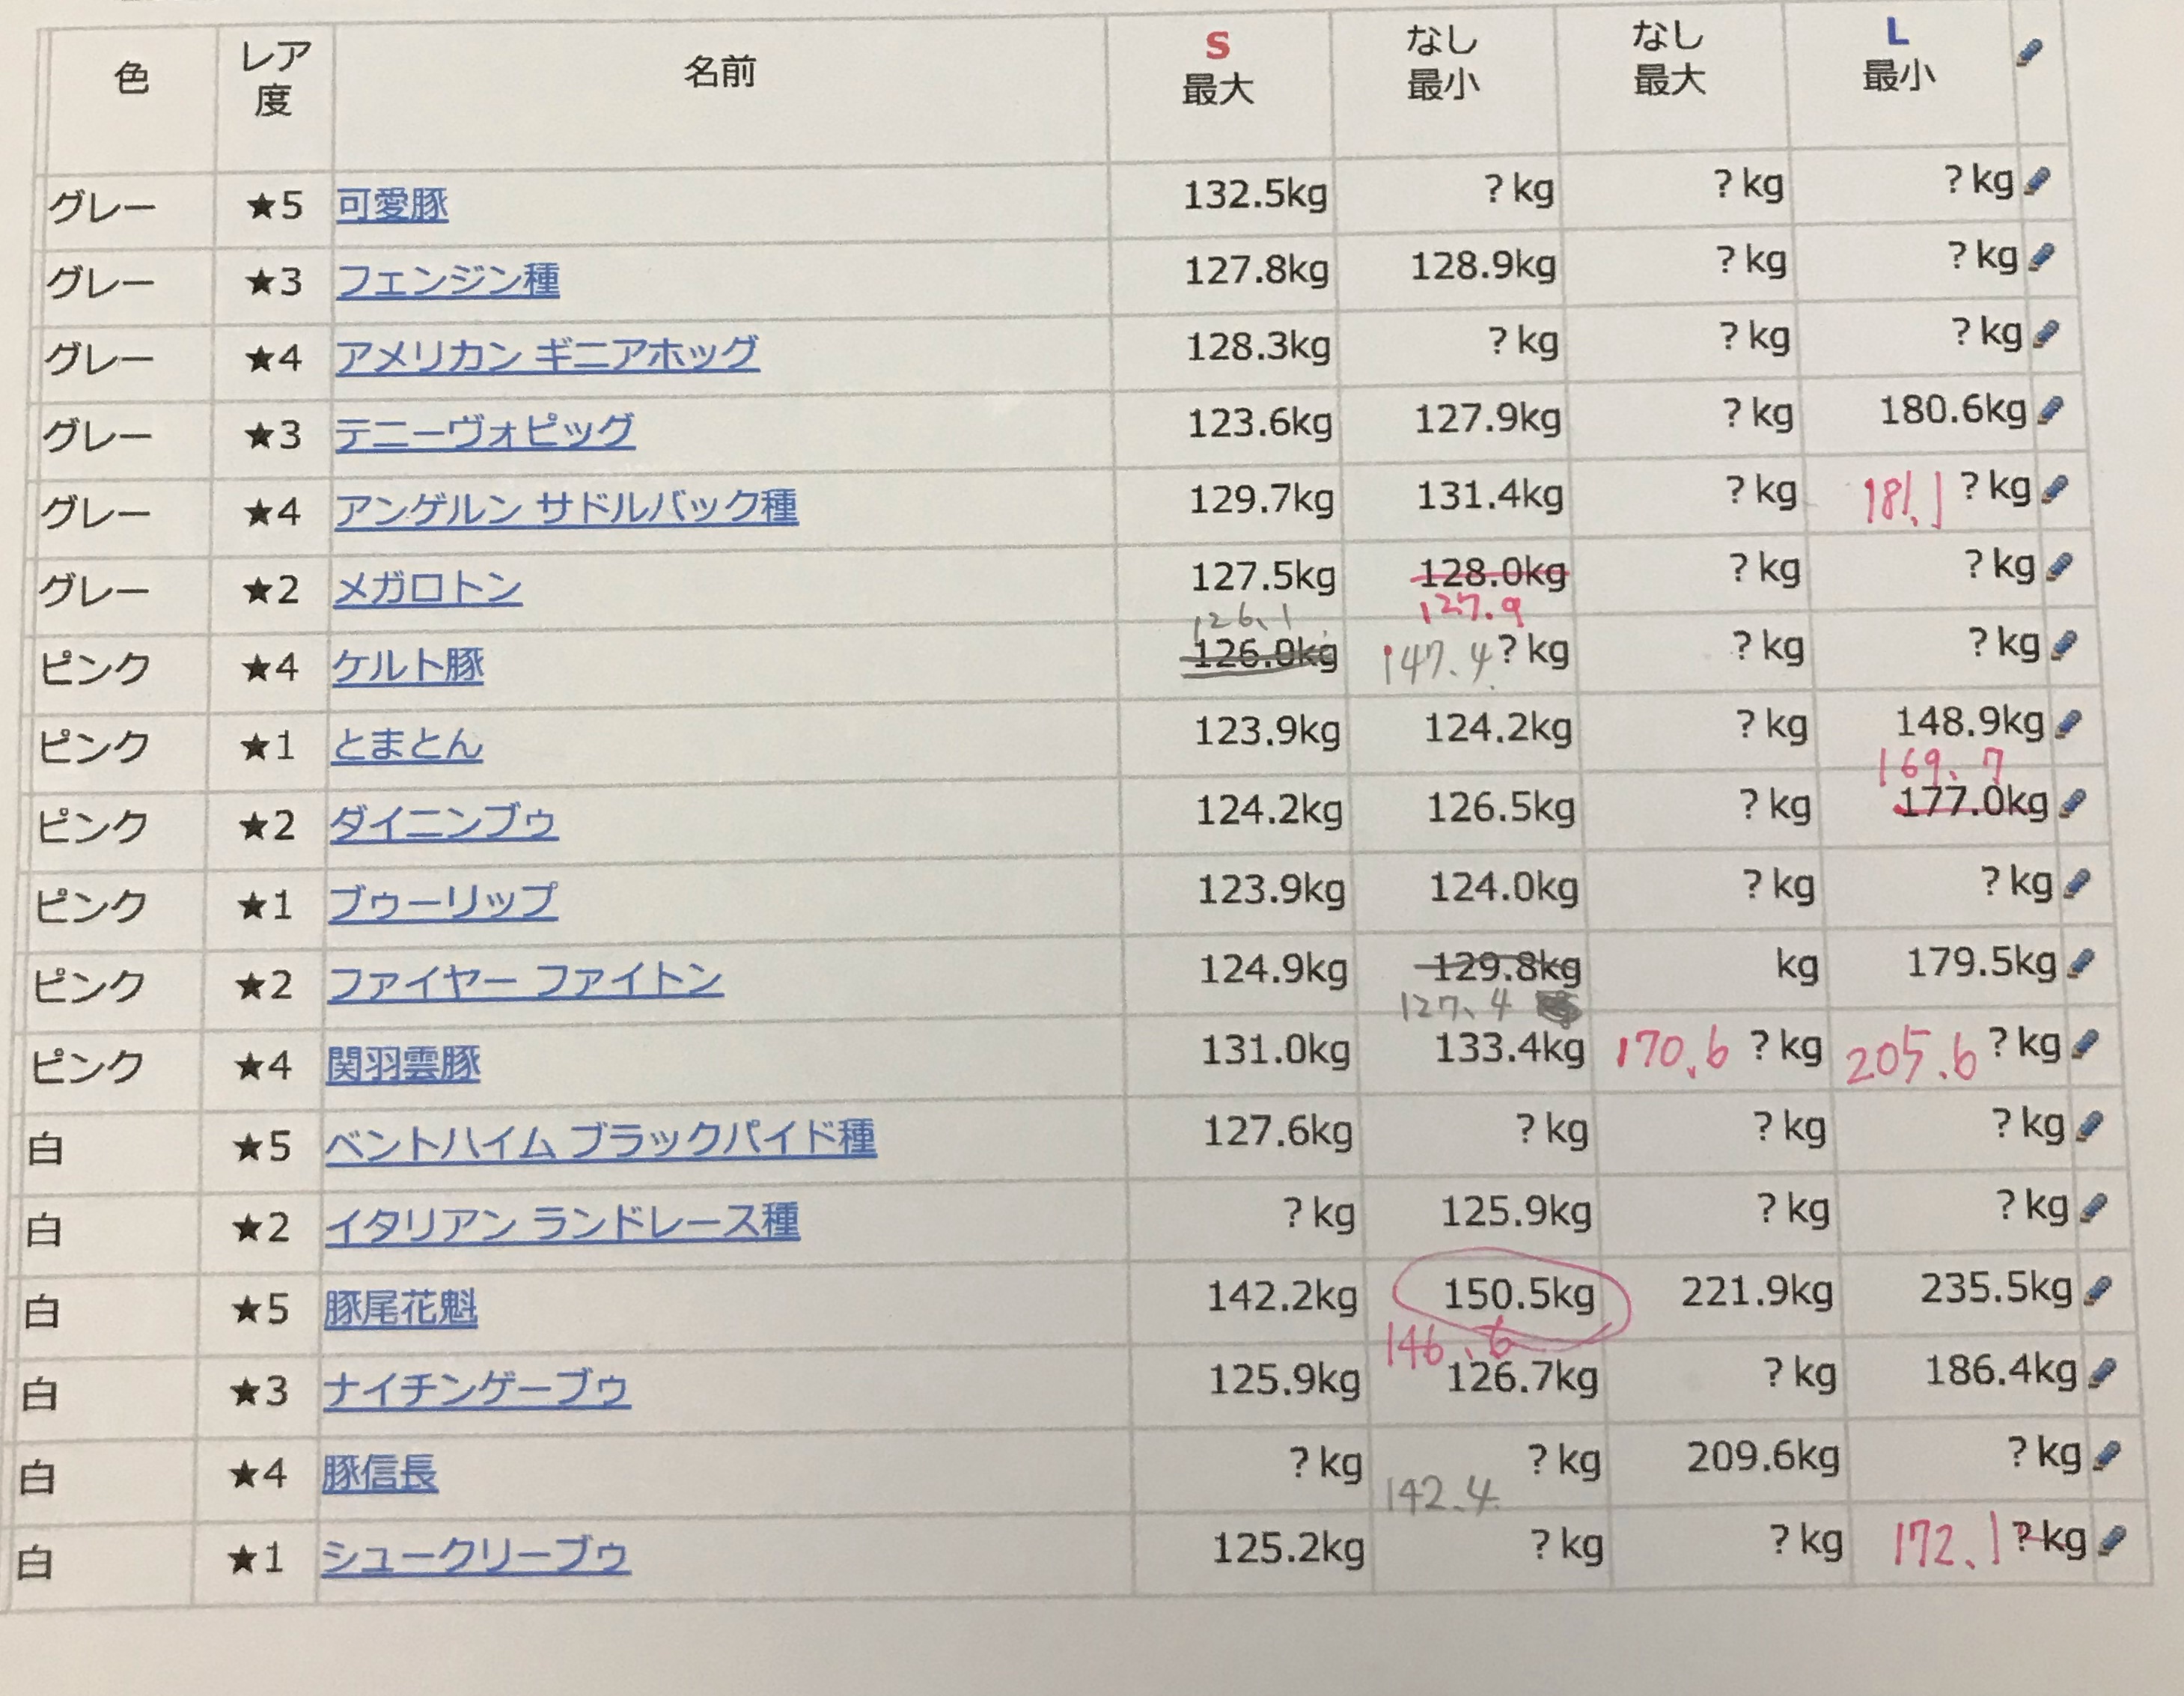 色 レア度 名前 S 最大 なし 最小 なし 最大 L 最小
グレー ★5 可愛豚 132.5kg ?kg ?kg ?kg
グレー ★3 フェンジン種 127.8kg 128.9kg ?kg ?kg
グレー ★4 アメリカン ギニアホッグ 128.3kg ?kg ?kg ?kg
グレー ★3 テニーヴォピッグ 123.6kg 127.9kg ?kg 180.6kg
グレー ★4 アンゲルン サドルバック種 129.7kg 131.4kg ?kg 181.1 ?kg
グレー ★2 メガロトン 127.5kg 128.0kg ?kg ?kg
126.1 127.9
ピンク ★4 ケルト豚 126.0kg 147.4 ?kg ?kg ?kg
ピンク ★1 とまとん 123.9kg 124.2kg ?kg 148.9kg
169.7
ピンク ★2 ダイニンブゥ 124.2kg 126.5kg ?kg 177.0kg
ピンク ★1 ブゥーリップ 123.9kg 124.0kg ?kg ?kg
ピンク ★2 ファイヤー ファイトン 124.9kg 129.8kg kg 179.5kg
127.4
ピンク ★4 関羽雲豚 131.0kg 133.4kg 170.6 ?kg 205.6 ?kg
白 ★5 ベントハイム ブラックパイド種 127.6kg ?kg ?kg ?kg
白 ★2 イタリアン ランドレース種 ?kg 125.9kg ?kg ?kg
白 ★5 豚尾花魁 142.2kg 150.5kg 221.9kg 235.5kg
146.6
白 ★3 ナイチンゲーブゥ 125.9kg 126.7kg ?kg 186.4kg
白 ★4 豚信長 ?kg ?kg 209.6kg ?kg
142.4
白 ★1 シュークリーブゥ 125.2kg ?kg ?kg 172.1 ?kg